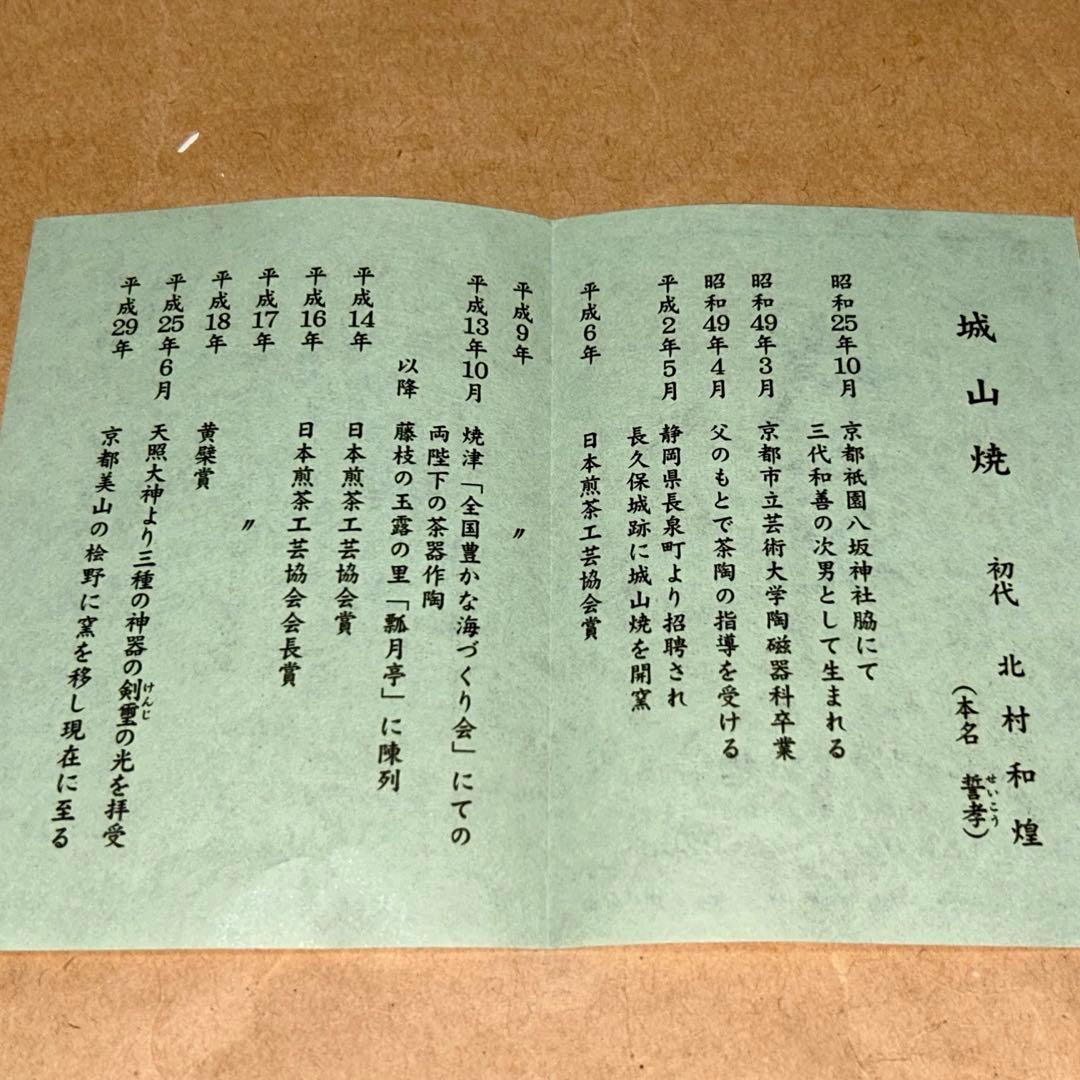 城山焼
初代 北村和煌
(本名 誓孝)
せいこう
昭和25年10月 京都祇園八坂神社脇にて
三代和善の次男として生まれる
昭和49年3月 京都市立芸術大学陶磁器科卒業
昭和49年4月 父のもとで茶陶の指導を受ける
平成2年5月 静岡県長泉町より招聘され
長久保城跡に城山焼を開窯
平成6年 日本煎茶工芸協会賞
平成9年 〃
平成13年10月 焼津「全国豊かな海づくり会」にての
両陛下の茶器作陶
以降 藤枝の玉露の里「瓢月亭」に陳列
平成14年 日本煎茶工芸協会賞
平成16年 日本煎茶工芸協会会長賞
平成17年 〃
平成18年 黄檗賞
平成25年6月 天照大神より三種の神器の剣璽の光を拝受
けんじ
平成29年 京都美山の桧野に窯を移し現在に至る